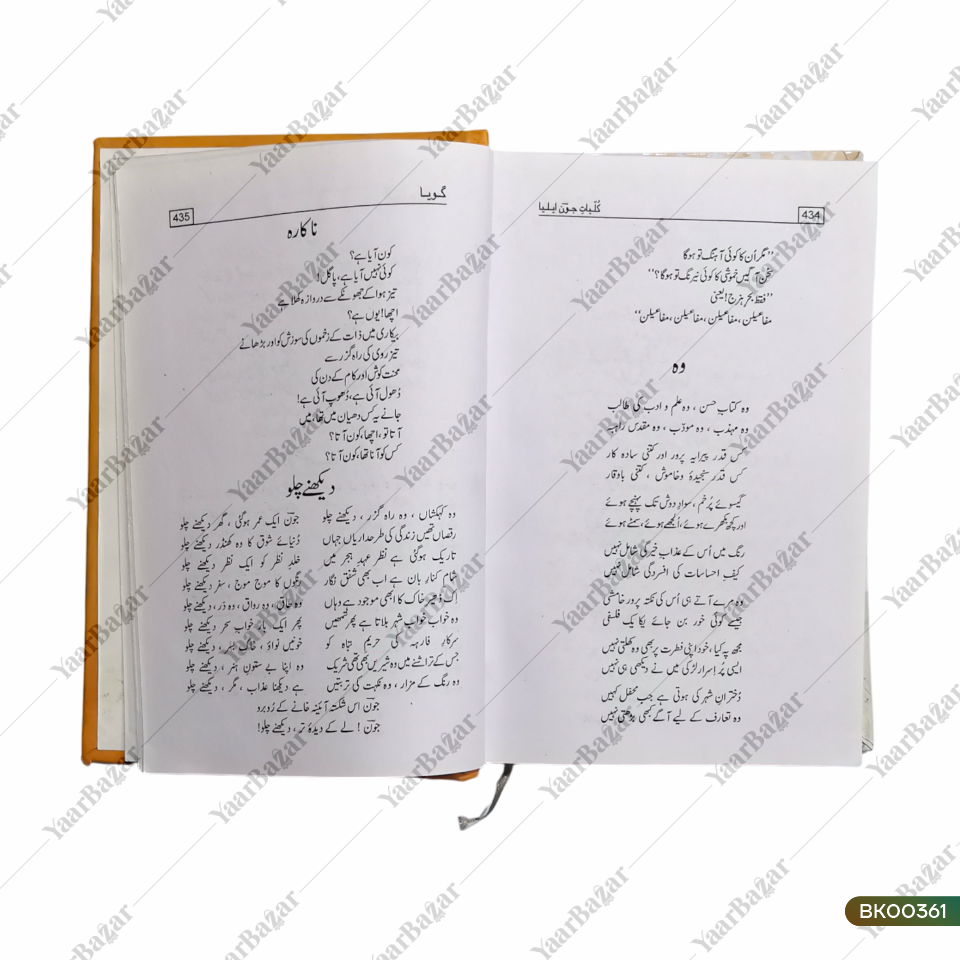 434
کُلّیاتِ جونؔ ایلیا
’’مگر اُن کا کوئی آہنگ تو ہوگا
سخُن آگیں خموشی کا کوئی نیرنگ تو ہوگا؟‘‘
’’فقط بحرِ ہزج! یعنی
مفاعیلن، مفاعیلن، مفاعیلن، مفاعیلن‘‘
وہ
وہ کتابِ حسن، وہ علم و ادب کی طالب
وہ مہذب، وہ مودّب، وہ مقدس راہبہ
کس قدر پیرایہ پرور اور کتنی سادہ کار
کس قدر سنجیدہ و خاموش، کتنی باوقار
گیسوئے پُرخم، سوادِ دوش تک پہنچے ہوئے
اور کچھ بکھرے ہوئے، اُلجھے ہوئے، سمٹے ہوئے
رنگ میں اُس کے عذابِ خیرگی شامل نہیں
کیفِ احساسات کی افسردگی شامل نہیں
وہ مرے آتے ہی اُس کی نکتہ پرور خامشی
جیسے کوئی حُور بن جائے یکایک فلسفی
مجھ پہ کیا، خود اپنی فطرت پر بھی وہ کھلتی نہیں
ایسی پُر اسرار لڑکی میں نے دیکھی ہی نہیں
دُخترانِ شہر کی ہوتی ہے جب محفل کہیں
وہ تعارف کے لیے آگے کبھی بڑھتی نہیں
گویا
435
ناکارہ
کون آیا ہے؟
کوئی نہیں آیا ہے، پاگل!
تیز ہوا کے جھونکے سے دروازہ کھلا ہے
اچھا! یوں ہے؟
بیکاری میں ذات کے زخموں کی سوزش کو اور بڑھانے
تیز روی کی راہ گزر سے
محنت کوش اور کام کے دن کی
دُھول آئی ہے، دُھوپ آئی ہے!
جانے یہ کس دھیان میں تھا، میں
آتا تو، اچھا، کون آتا؟
کس کو آنا تھا، کون آتا؟
دیکھنے چلو
وہ کہکشاں، وہ راہ گزر، دیکھنے چلو
جونؔ ایک عمر ہوگئی، گھر دیکھنے چلو
رقصاں تھیں زندگی کی طرحداریاں جہاں
دُنیائے شوق کا وہ کھنڈر دیکھنے چلو
تاریک ہوگئی ہے نظر عہدِ ہجر میں
خلدِ نظر کو ایک نظر دیکھنے چلو
شام کنارِ بان ہے اب بھی شفق نگار
رنگوں کا موج موج، سفر دیکھنے چلو
اِک ڈھیر خاک کا ابھی موجود ہے وہاں
وہ طاق، وہ رواق، وہ در، دیکھنے چلو
وہ خواب خواب شہر بلاتا ہے پھر تمھیں
پھر ایک بار خوابِ سحر دیکھنے چلو
سرکار فارہہ کی حریمِ تباہ کو
خونیں نواؤ، خاک بسر، دیکھنے چلو
جس کے تراشنے میں وہ شیریں بھی تھی شریک
وہ اپنا بے ستونِ ہنر، دیکھنے چلو
وہ رنگ کے مزار، وہ نکہت کی تربتیں
ہے دیکھنا عذاب، مگر، دیکھنے چلو
جونؔ اس شکستہ آئینہ خانے کے رُوبرو
جونؔ! لے کے دیدۂ تر، دیکھنے چلو!
YaarBazar
BK00361